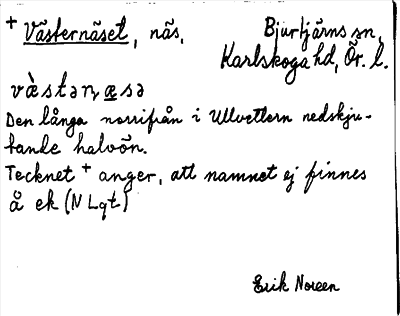 + Västernäset, näs,
Bjurtjärns sn,
Karlskoga hd, Ör. l.
vὰstəṇæsə
Den långa norrifrån i Ullvettern nedskju-
tande halvön.
Tecknet + anger, att namnet ej finnes
å ek (N Lgt)
Erik Noreen